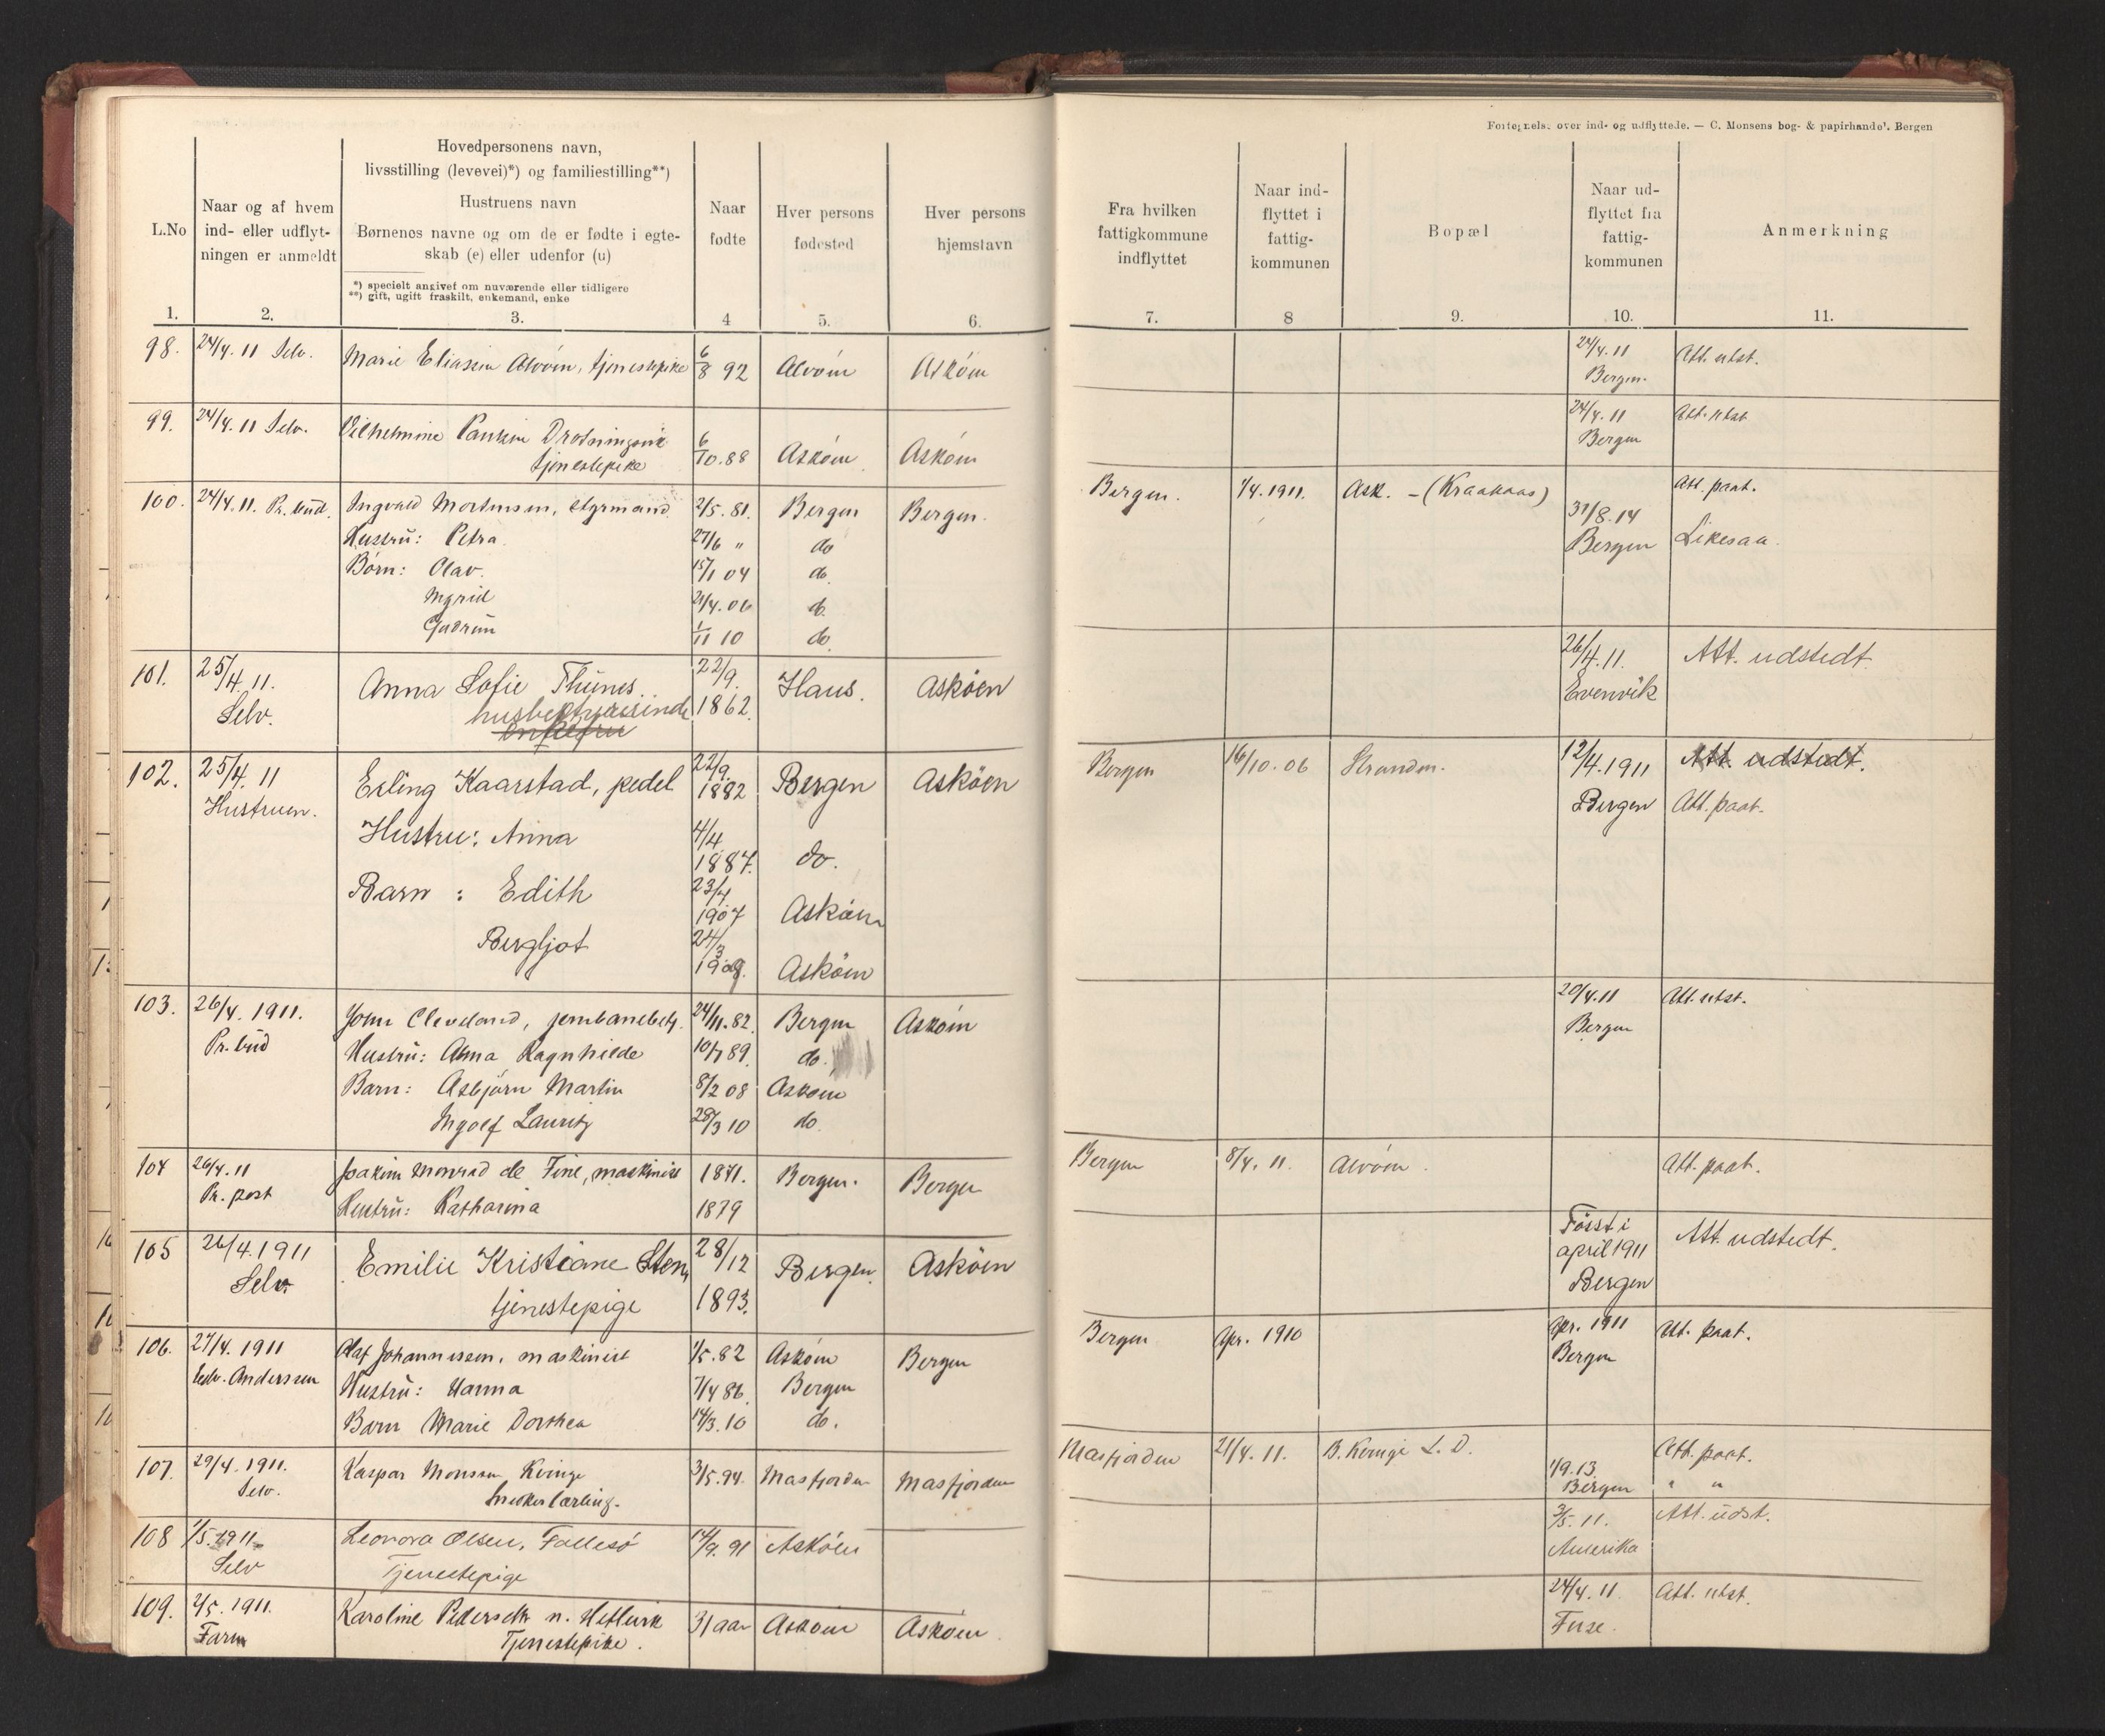 Fortegnelse over ind- og udflyttede. — C. Monsens bog- & papirhandel. Bergen
L.No
Naar og af hvem
ind- eller udflyt-
ningen er anmeldt
Hovedpersonens navn,
livsstilling (levevei)*) og familiestilling**)
Hustruens navn
Børnenes navne og om de er fødte i egte-
skab (e) eller udenfor (u)
*) specielt angivet om nuværende eller tidligere
**) gift, ugift fraskilt, enkemand, enke
Naar
fødte
Hver persons
fødested
Hver persons
hjemstavn
Fra hvilken
fattigkommune
indflyttet
Naar ind-
flyttet i
fattig-
kommunen
Bopæl
Naar ud-
flyttet fra
fattig-
kommunen
Anmerkning
1. 2. 3. 4 5. 6. 7. 8 9. 10. 11.
98. 24/4. 11 Selv. Marie Eliassen Alvøen, tjenestepike 6/8 92 Alvøen Askøen 24/4. 11 Att. utst.
Bergen.
99. 24/4. 11 Selv. Vilhelmine Pauline 6/10. 88 Askøen Askøen 24/4. 11 Att. utst
tjenestepike Bergen
100. 24/4. 11. Pr. bud. Ingvald Mortensen, styrmand 2/5. 81. Bergen Bergen. Bergen. 1/4. 1911. Ask. - (Kraakaas) 31/8. 14 Att. paat.
Hustru: Petra 27/6 " do Bergen Likesaa.
Børn: Olav. 15/1 04 do.
Ingrid 21/4. 06 do.
Gudrun 1/11 10 do.
101. 25/4. 11. Anna Sofie Thunes 22/9. 1862. Haus. Askøen 26/4. 11. Att. udstedt.
Selv. husbestyrerinde Evenvik
102. 25/4. 11 Erling Kaarstad, pedel 22/9. 1882 Bergen Askøen Bergen 16/10. 06 Strandm. 12/4. 1911 Att. udstedt.
Hustruen. Bergen Att. paat.
Hustru: Anna 4/4 1887. do.
Barn: Edith 23/4 1907 Askøen
Bergljot 24/3 1909. Askøen
103. 26/4. 1911. John Cleveland, jernbanebetj. 24/11. 82. Bergen Askøen 20/4. 11 Att. utst.
Pr. bud Hustru: Anna Ragnhilde 10/7 89. do. Bergen
Barn: Asbjørn Martin 8/2 08 Askøen
Ingolf Lauritz 28/3 10 do.
104 26/4. 11 Joakim Monrad de Fine, maskinist 1871. Bergen. Bergen Bergen 8/4. 11. Alvøen. Att. paat.
Pr. post Hustru: Katharina 1879
105 26/4. 1911 Emilie Kristiane Sten, 28/12 1893. Bergen. Askøen Først i april 1911 Att. udstedt.
Selv. tjenestepige Bergen
106. 27/4. 1911 Olaf Johannessen, maskinist 1/5. 82 Askøen Bergen Bergen Apr. 1910 Apr. 1911 Att. paat.
Anderssen Hustru: Hanna 7/4 86. Bergen Bergen
Barn Marie Dorthea 14/3. 10 do.
107. 29/4. 1911. Kaspar Monsen Kvinge 3/5. 94. Masfjorden Masfjorden Masfjorden 21/4. 11. B. Kvinge L. D. 1/9. 13. Att. paat.
Selv. Snedkerlærling. Bergen " "
108 1/5. 1911 Leonora Olsen, Follesø 14/9. 91 Askøen 3/5. 11. Att. udst.
Selv Tjenestepige Amerika
109. 2/5. 1911. Karoline Pedersdtr. n. Hetlevik 31 aar Askøen Askøen. 24/4. 11. Att. utst.
Faren Tjenestepike. Fuse.